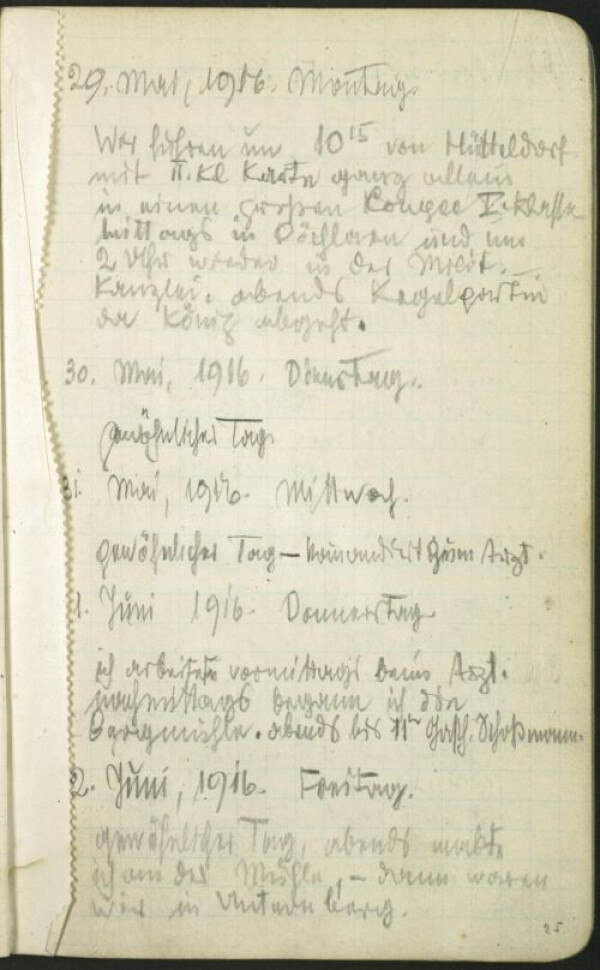 29. Mai, 1916. Montag.
Wir fuhren um 10 15 von Hütteldorf
mit II. Kl Karte ganz allein
in einen großen Coupee I. Klasse
mittags in Pöchlarn und um
2 Uhr wieder in der Milit.-
kanzlei. abends Kegelpartie
da König abgeht.
30. Mai, 1916. Dienstag.
gewöhnlicher Tag.
31. Mai, 1916. Mittwoch.
gewöhnlicher Tag – komandiert zum Arzt.
1. Juni 1916. Donnerstag.
ich arbeitete vormittags beim Arzt.
nachmittags begann ich die
Bergmühle. abends bis 11 Gasth. Schoßmann.
2. Juni, 1916. Freitag.
gewöhnlicher Tag, abends malte
ich an der Mühle, – dann waren
wir in Unternberg.
25